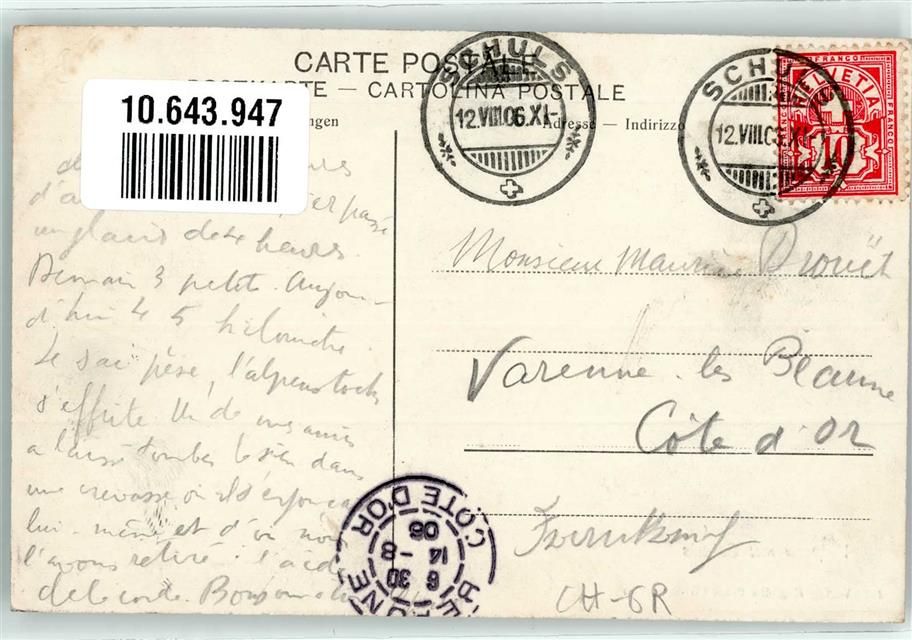 CARTE POSTALE
TE — CARTOLINA POSTALE
ngen
Adresse — Indirizzo
10.643.947
SCHULS
12.VIII.06.XI-
SCHU
12.VIII.06.XI
FRANCO
HELVETIA
10
passé
un glacis de 4 heures.
Demain 3 petits. Aujour-
d'hui 45 kilomètres.
Le sac pèse, l'alpenstock
s'effrite Un de mes amis
a laissé tomber le sien dans
une crevasse où il s'enfonça
lui-même et d'où nous
l'avons retiré à l'aide
de la corde.
Monsieur Maurice Drouët
Varenne-les Beaune
Côte d'Or
Frankreich
CH-GR
BEAUNE
CÔTE D'OR
6 30
14 -8
06